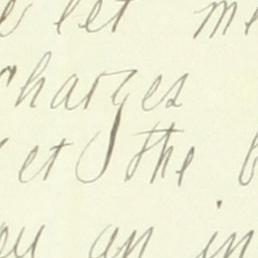 let me
charges
et the
an in